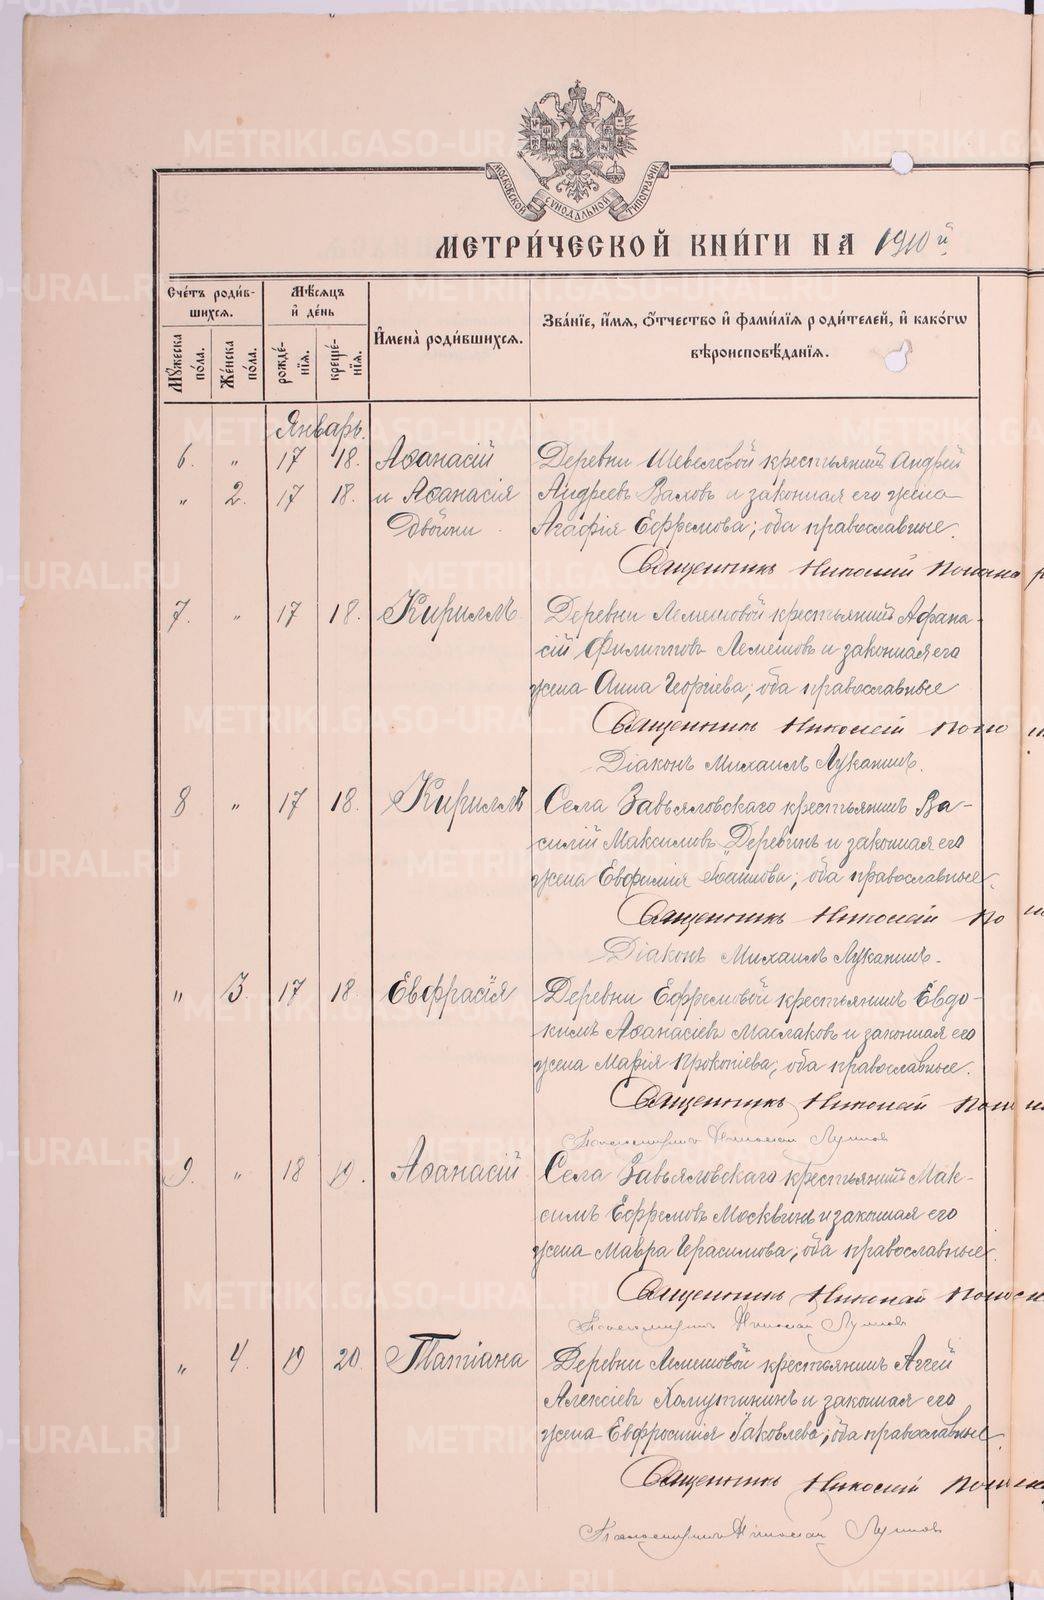 МОСКОВСКОЙ СѴНОДАЛЬНОЙ ТИПОГРАФІИ
МЕТРИ́ЧЕСКОЙ КНИ́ГИ НА 1910й
Сче́тъ роди́в-
шихся.
Мѣ́сяцъ
и҆ де́нь
И҆мена̀ роди́вшихся.
Зва́нїе, и҆́мя, ѻ҆́тчество и҆ фами́лїя роди́телей, и҆ како́гѡ
вѣроисповѣ́данїя.
Мꙋ́жеска по́ла.
Же́нска по́ла.
рожде́-нїя.
креще́-нїя.
Январь.
6. „ 17 18. Аѳанасій Деревни Шевелевой крестьянинъ Андрей
„ 2. 17 18. и Аѳанасія Андреевъ Валовъ и законная его жена
Двойни Агафія Ефремова; оба православные.
Священникъ Николай
7. „ 17 18. Кириллъ Деревни Лемешовой крестьянинъ Афана-
сій Филипповъ Лемешовъ и законная его
жена Анна Георгіева; оба православные
Священникъ Николай
Діаконъ Михаилъ Лукани­нъ.
8 „ 17 18. Кириллъ Села Завьяловскаго крестьянинъ Ва-
силій Максимовъ Деревинъ и законная его
жена Евфимія Іоаннова; оба православные.
Священникъ Николай
Діаконъ Михаилъ Лукани­нъ.
„ 3. 17 18. Евфрасія Деревни Ефремовой крестьянинъ Евдо-
кимъ Аѳанасіевъ Маслаковъ и законная его
жена Марія Прокопіева; оба православные.
Священникъ Николай
Псаломщикъ Николай Лупповъ
9. „ 18 19. Аѳанасій Села Завьяловскаго крестьянинъ Мак-
симъ Ефремовъ Москвинъ и законная его
жена Мавра Герасимова; оба православные.
Священникъ Николай
Псаломщикъ Николай Лупповъ
„ 4. 19 20. Татіана Деревни Лемешовой крестьянинъ Аггей
Алексіевъ Хомутининъ и законная его
жена Евфросинія Іаковлева; оба православные.
Священникъ Николай
Псаломщикъ Николай Лупповъ
METRIKI.GASO-URAL.RU